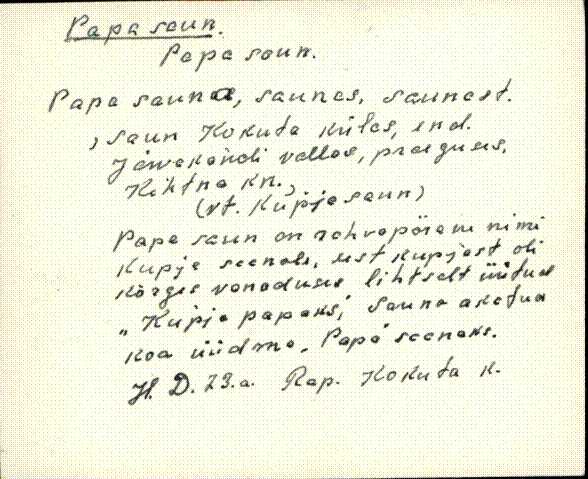 Papa saun.
Papa saun.
Papa sauna, saunas, saunast.
, saun Kokuta külas, end.
Järvakandi vallas, praeguses,
Kihtna kn.,
(vt. Kupja saun)
Papa saun on rahvapärane nimi
Kupja saunale, sest kupjast oli
kõrges vanaduses lihtselt üütud
„Kupja papaks", Sauna aketud
koa üüdma „Papa" saunaks.
H. D. 23.a. Rap. Kokuta k.